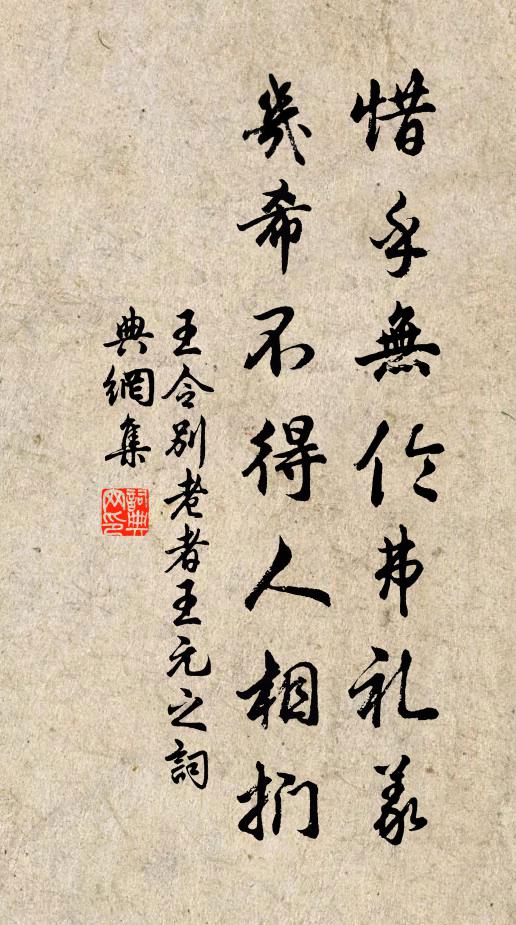 惜乎無弗礼義
幾希不得人相扪
王令别老者王元之詞
典網集
詞典网印